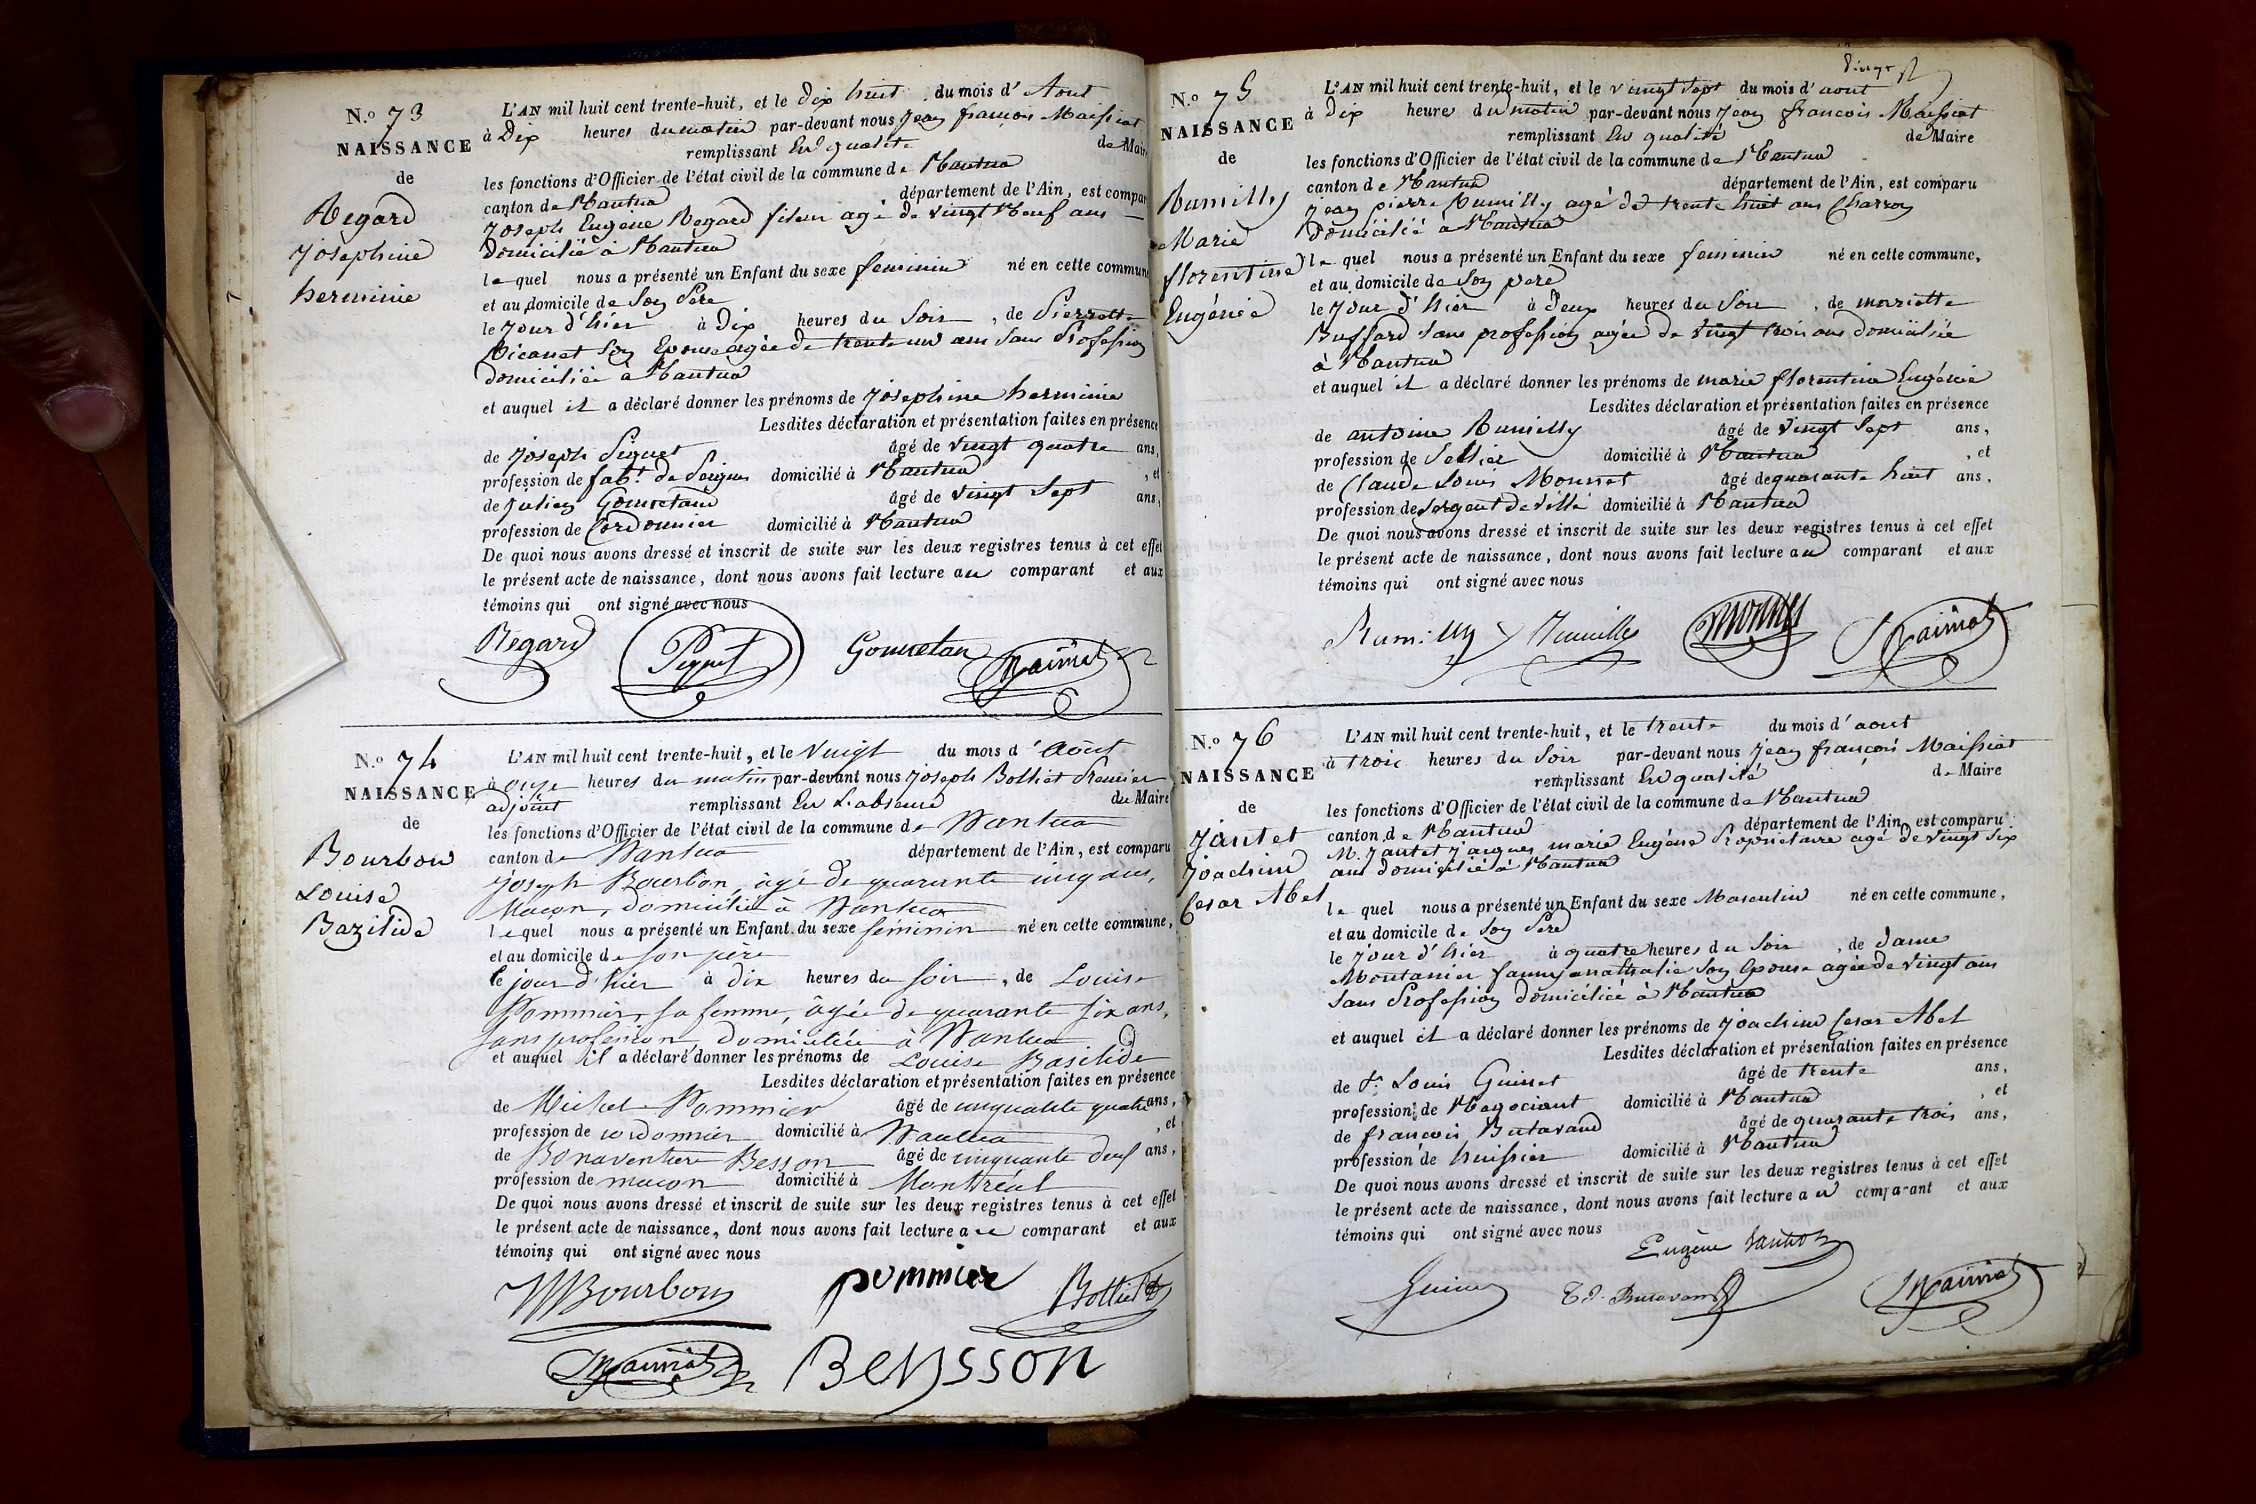 N.o 73
NAISSANCE
de
Regard
Joséphine
herminie
L'AN mil huit cent trente-huit, et le dix huit du mois d'Aout
à Dix heures du matin par-devant nous Jean françois Maissiat
remplissant En qualité de Maire
les fonctions d'Officier de l'état civil de la commune de Nantua
canton de Nantua département de l'Ain, est compar
Joseph Eugène Regard fileur agé de vingt Neuf ans
domicilié à Nantua
lequel nous a présenté un Enfant du sexe feminin né en cette commune
et au domicile de Son Père
le Jour d'hier à Dix heures du Soir, de Pierrette
son Epouse agée de trente un ans sans Profession
domiciliée à Nantua
et auquel il a déclaré donner les prénoms de Joséphine herminie
Lesdites déclaration et présentation faites en présence
de Joseph Piquet âgé de vingt quatre ans,
profession de fabt. de Peignes domicilié à Nantua, et
de Julien Gouretand âgé de vingt Sept ans,
profession de Cordonnier domicilié à Nantua
De quoi nous avons dressé et inscrit de suite sur les deux registres tenus à cet effet
le présent acte de naissance, dont nous avons fait lecture au comparant et aux
témoins qui ont signé avec nous
Régard Piquet Gouretan Maissiat
N.o 74
NAISSANCE
de
Bourbon
Louise
Bazilide
L'AN mil huit cent trente-huit, et le Vingt du mois d'Août
à onze heures du matin par-devant nous Joseph Bolliet Premier
adjoint remplissant En L'absence du Maire
les fonctions d'Officier de l'état civil de la commune de Nantua
canton de Nantua département de l'Ain, est comparu
Joseph Bourbon, âgé de quarante cinq ans,
Maçon, domicilié à Nantua
lequel nous a présenté un Enfant du sexe féminin né en cette commune,
et au domicile de son père
le jour d'hier à dix heures du soir, de Louise
Pommier, sa femme, âgée de quarante six ans,
sans profession, domiciliée à Nantua
et auquel il a déclaré donner les prénoms de Louise Basilide
Lesdites déclaration et présentation faites en présence
de Michel Pommier âgé de cinquante quatre ans,
profession de cordonnier domicilié à Nantua, et
de Bonaventure Besson âgé de cinquante deux ans,
profession de maçon domicilié à Montréal
De quoi nous avons dressé et inscrit de suite sur les deux registres tenus à cet effet
le présent acte de naissance, dont nous avons fait lecture au comparant et aux
témoins qui ont signé avec nous
Bourbon pommier Bolliet
Maissiat Beysson
N.o 75
NAISSANCE
de
Rumilly
Marie
florentine
Eugénie
L'AN mil huit cent trente-huit, et le vingt Sept du mois d'aout
à Dix heures du matin par-devant nous Jean françois Maissiat
remplissant En qualité de Maire
les fonctions d'Officier de l'état civil de la commune de Nantua
canton de Nantua département de l'Ain, est comparu
jean pierre Rumilly agé de trente huit ans Charron
domicilié à Nantua
lequel nous a présenté un Enfant du sexe feminin né en cette commune,
et au domicile de Son père
le Jour d'hier à deux heures du Soir, de mariette
Buffard sans profession agée de vingt trois ans domiciliée
à Nantua
et auquel il a déclaré donner les prénoms de marie florentine Eugénie
Lesdites déclaration et présentation faites en présence
de antoine Rumilly âgé de vingt Sept ans,
profession de Sellier domicilié à Nantua, et
de Claude Louis Mounet âgé de quarante huit ans,
profession de Sergent de Ville domicilié à Nantua
De quoi nous avons dressé et inscrit de suite sur les deux registres tenus à cet effet
le présent acte de naissance, dont nous avons fait lecture au comparant et aux
témoins qui ont signé avec nous
Rumilly Rumilly Maissiat
N.o 76
NAISSANCE
de
Jantet
Joachim
Cesar Abel
L'AN mil huit cent trente-huit, et le trente du mois d'aout
à trois heures du Soir par-devant nous Jean françois Maissiat
remplissant En qualité de Maire
les fonctions d'Officier de l'état civil de la commune de Nantua
canton de Nantua département de l'Ain, est comparu
M. Jantet Jacques marie Eugène Propriétaire agé de vingt six
ans domicilié à Nantua
lequel nous a présenté un Enfant du sexe Masculin né en cette commune,
et au domicile de Son Père
le Jour d'hier à quatre heures du Soir, de dame
Montanier fanny anathalie Son Epouse agée de vingt ans
sans Profession domiciliée à Nantua
et auquel il a déclaré donner les prénoms de Joachim Cesar Abel
Lesdites déclaration et présentation faites en présence
de Sr. Louis Guinet âgé de trente ans,
profession de Négociant domicilié à Nantua, et
de françois Butavand âgé de quarante trois ans,
profession de huissier domicilié à Nantua
De quoi nous avons dressé et inscrit de suite sur les deux registres tenus à cet effet
le présent acte de naissance, dont nous avons fait lecture au comparant et aux
témoins qui ont signé avec nous
Eugène Jantet
Guinet Butavand Maissiat